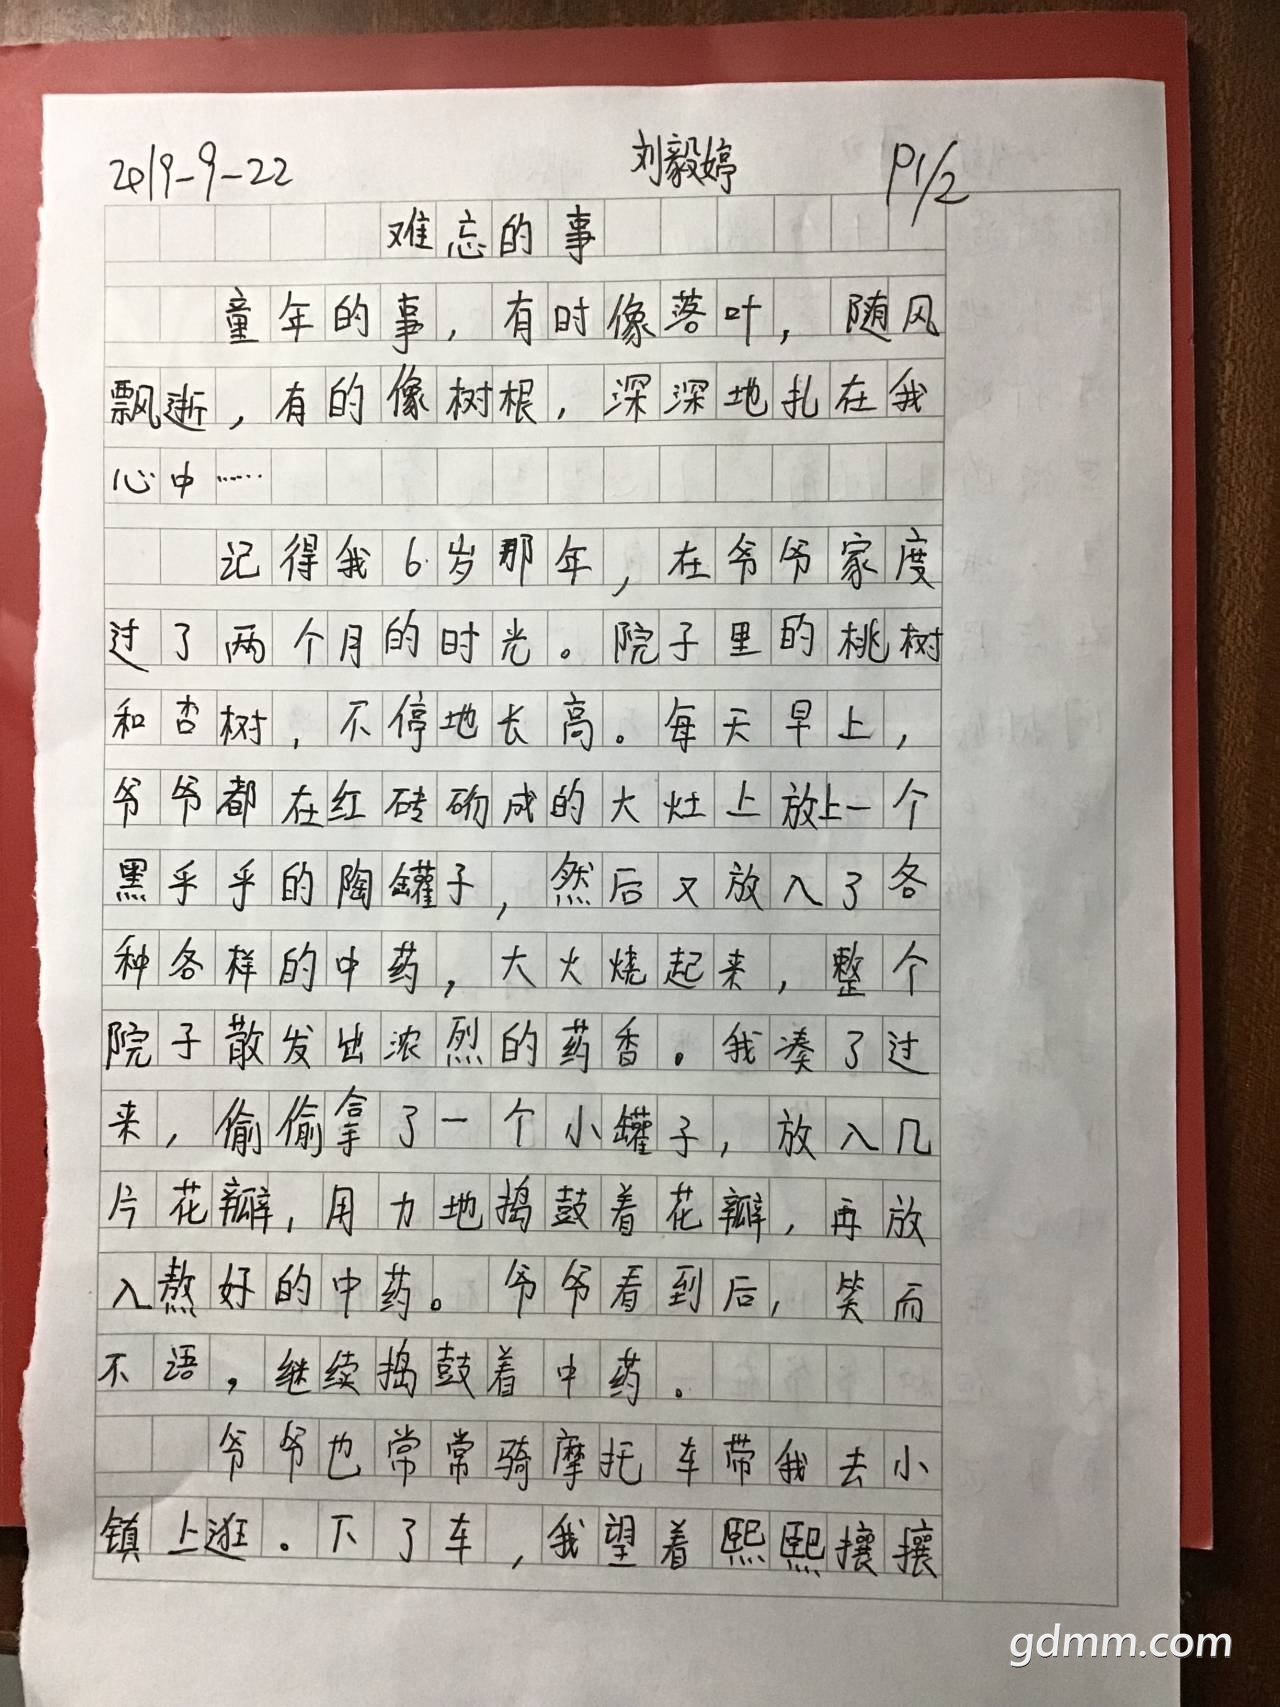 2019-9-22 刘毅婷 P1/2
难忘的事
童年的事，有时像落叶，随风
飘逝，有的像树根，深深地扎在我
心中……
记得我6岁那年，在爷爷家度
过了两个月的时光。院子里的桃树
和杏树，不停地长高。每天早上，
爷爷都在红砖砌成的大灶上放上一个
黑乎乎的陶罐子，然后又放入了各
种各样的中药，大火烧起来，整个
院子散发出浓烈的药香。我凑了过
来，偷偷拿了一个小罐子，放入几
片花瓣，用力地捣鼓着花瓣，再放
入熬好的中药。爷爷看到后，笑而
不语，继续捣鼓着中药。
爷爷也常常骑摩托车带我去小
镇上逛。下了车，我望着熙熙攘攘
gdmm.com